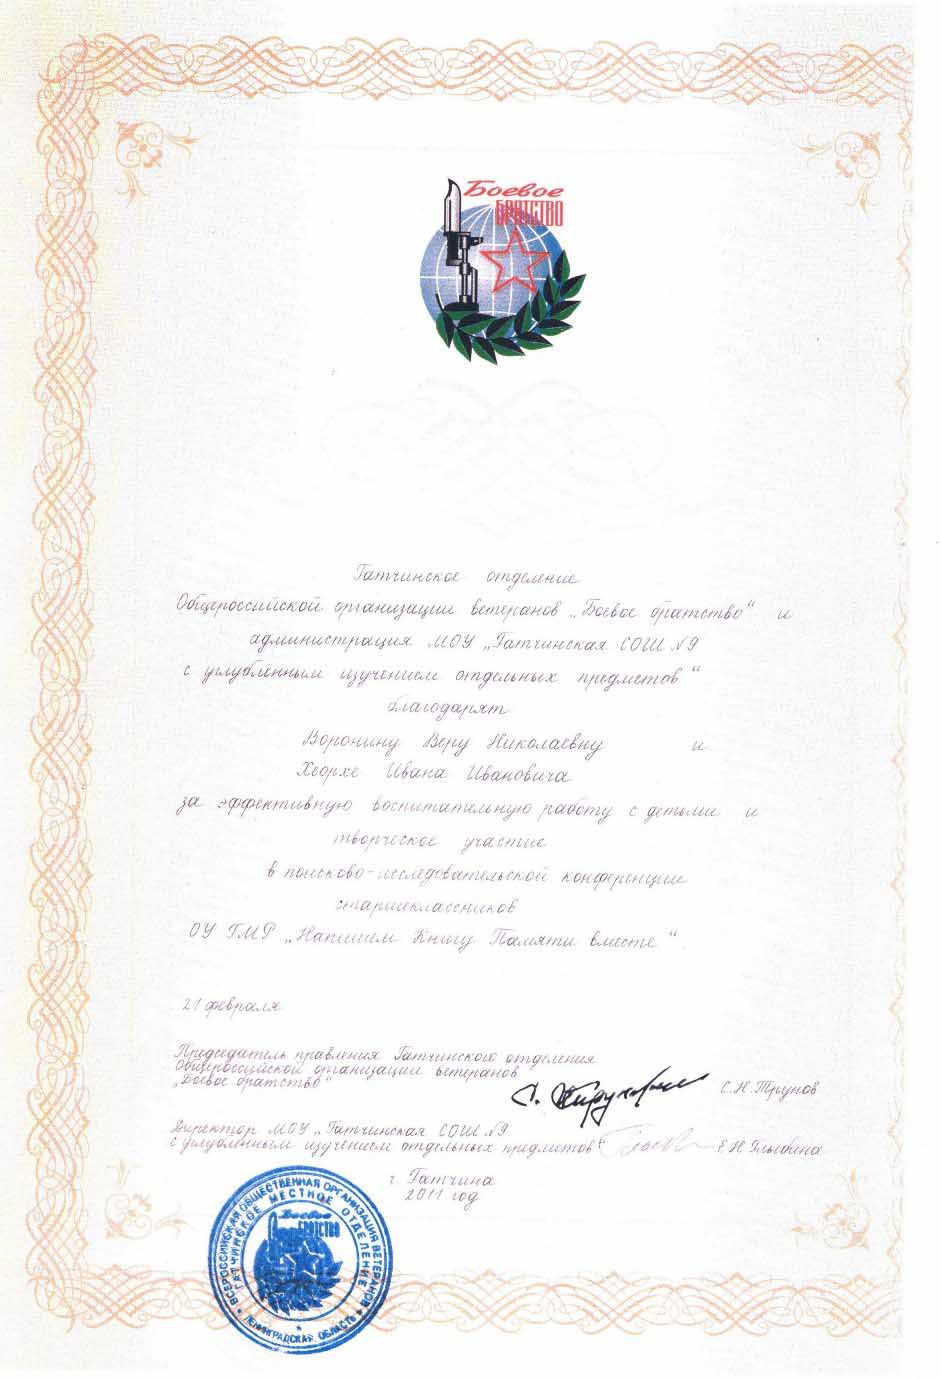 Боевое
БРАТСТВО
Гатчинское отделение
Общероссийской организации ветеранов „Боевое братство“ и
администрация МОУ „Гатчинская СОШ №9
с углубленным изучением отдельных предметов“
благодарят
Воронину Веру Николаевну и
Хеорхе Ивана Ивановича
за эффективную воспитательную работу с детьми и
творческое участие
в поисково-исследовательской конференции
старшеклассников
ОУ ГМР „Напишем Книгу Памяти вместе“.
21 февраля
Председатель правления Гатчинского отделения
Общероссийской организации ветеранов
„Боевое братство“
С.Н.Трунов
Директор МОУ „Гатчинская СОШ №9
с углубленным изучением отдельных предметов“ Е.Н.
г. Гатчина
2011 год
ВСЕРОССИЙСКАЯ ОБЩЕСТВЕННАЯ ОРГАНИЗАЦИЯ ВЕТЕРАНОВ
ГАТЧИНСКОЕ МЕСТНОЕ ОТДЕЛЕНИЕ
Боевое
БРАТСТВО
ЛЕНИНГРАДСКАЯ ОБЛАСТЬ